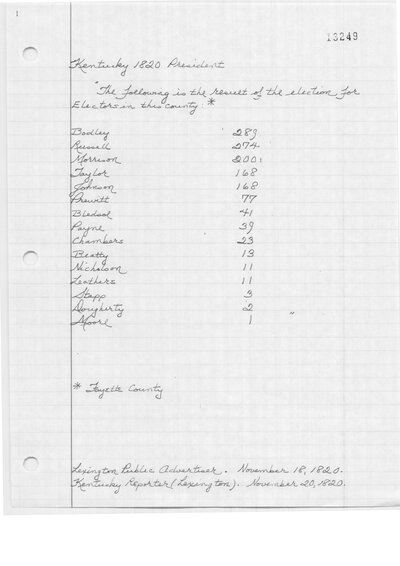 1
13249
Kentucky 1820 President
"The following is the result of the election for
Electors in this county: *
Bodley 289
Russell 274
Morrison 200
Taylor 168
Johnson 168
Prewitt 77
Bledsoe 41
Payne 39
Chambers 23
Beatty 13
Nicholson 11
Leathers 11
Stapp 3
Dougherty 2 "
Moore 1
* Fayette County
Lexington Public Advertiser. November 18, 1820.
Kentucky Reporter (Lexington). November 20, 1820.